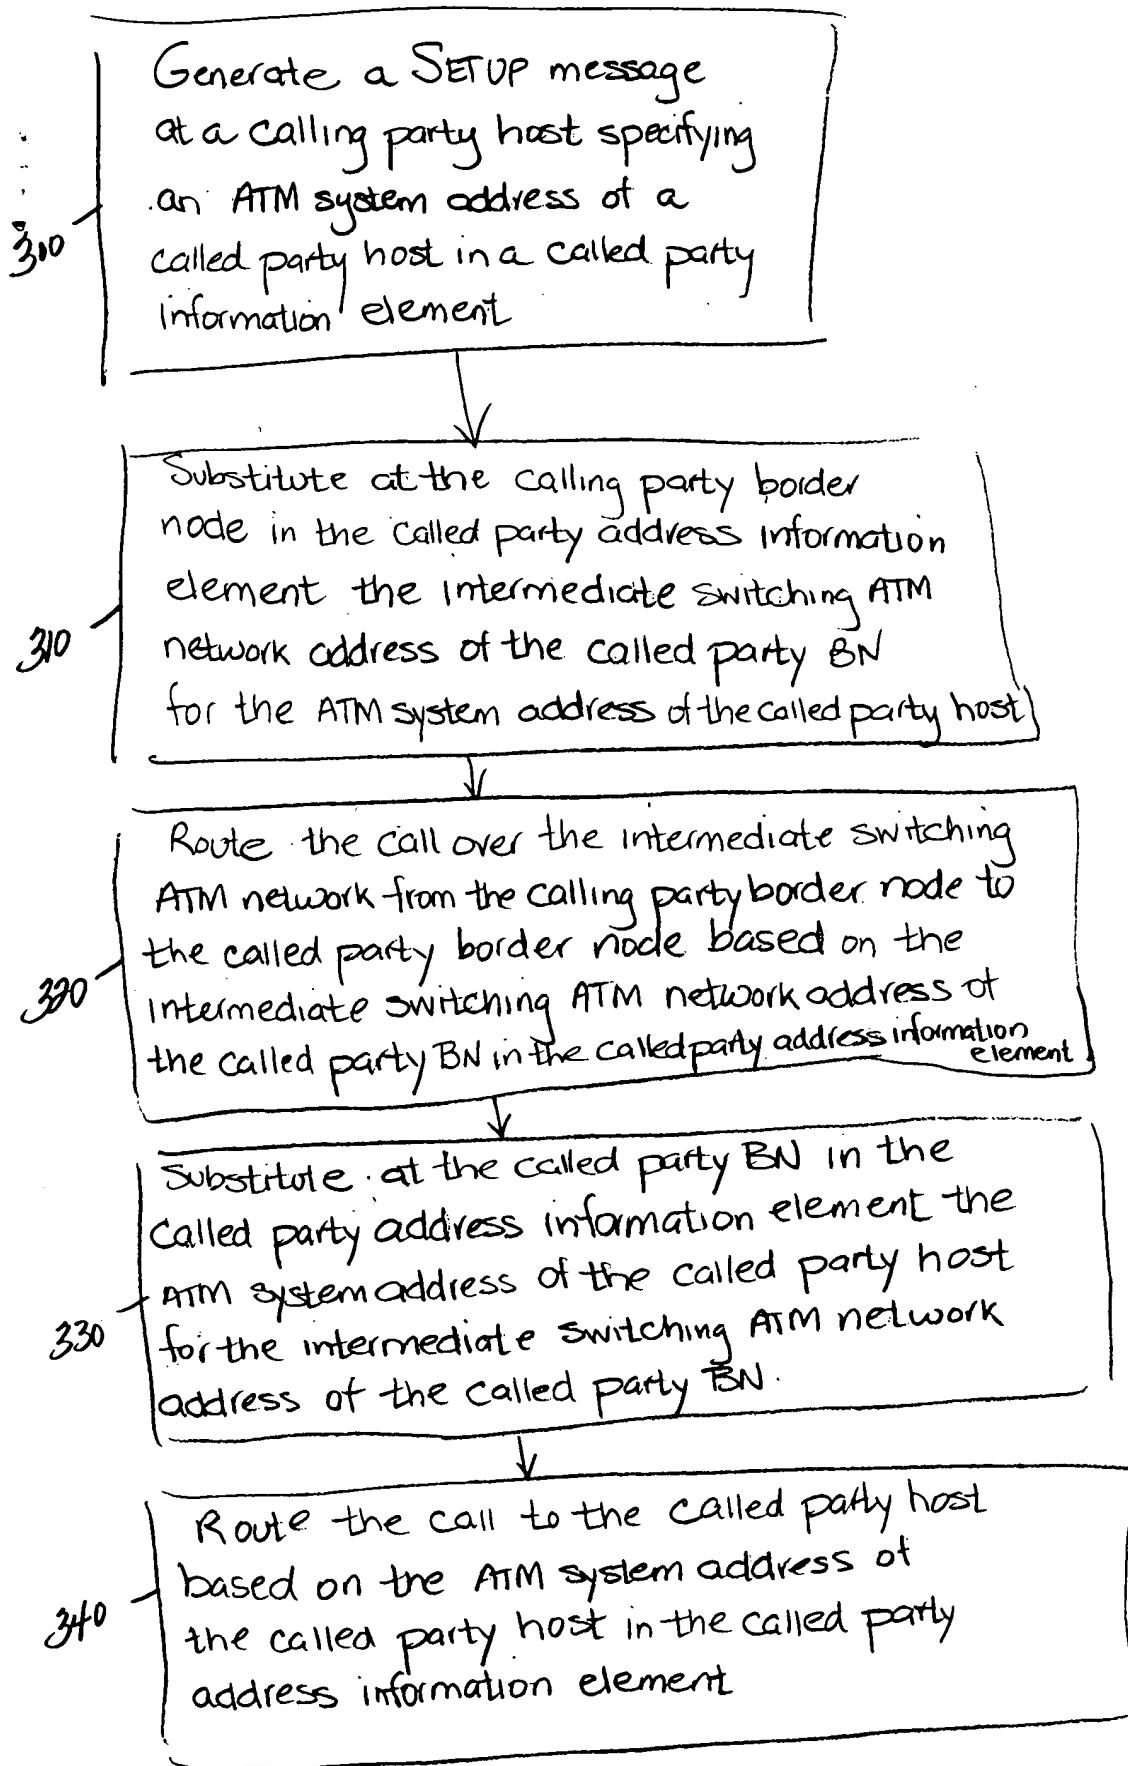 Generate a SETUP message
at a calling party host specifying
an ATM system address of a
called party host in a called party
information element
300
Substitute at the calling party border
node in the called party address information
element the intermediate switching ATM
network address of the called party BN
for the ATM system address of the called party host
310
Route the call over the intermediate switching
ATM network from the calling party border node to
the called party border node based on the
intermediate switching ATM network address of
the called party BN in the called party address information
element
320
Substitute at the called party BN in the
called party address information element the
ATM system address of the called party host
for the intermediate switching ATM network
address of the called party BN.
330
Route the call to the called party host
based on the ATM system address of
the called party host in the called party
address information element
340